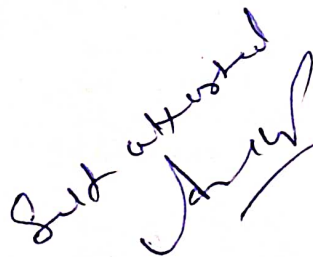 Self attested